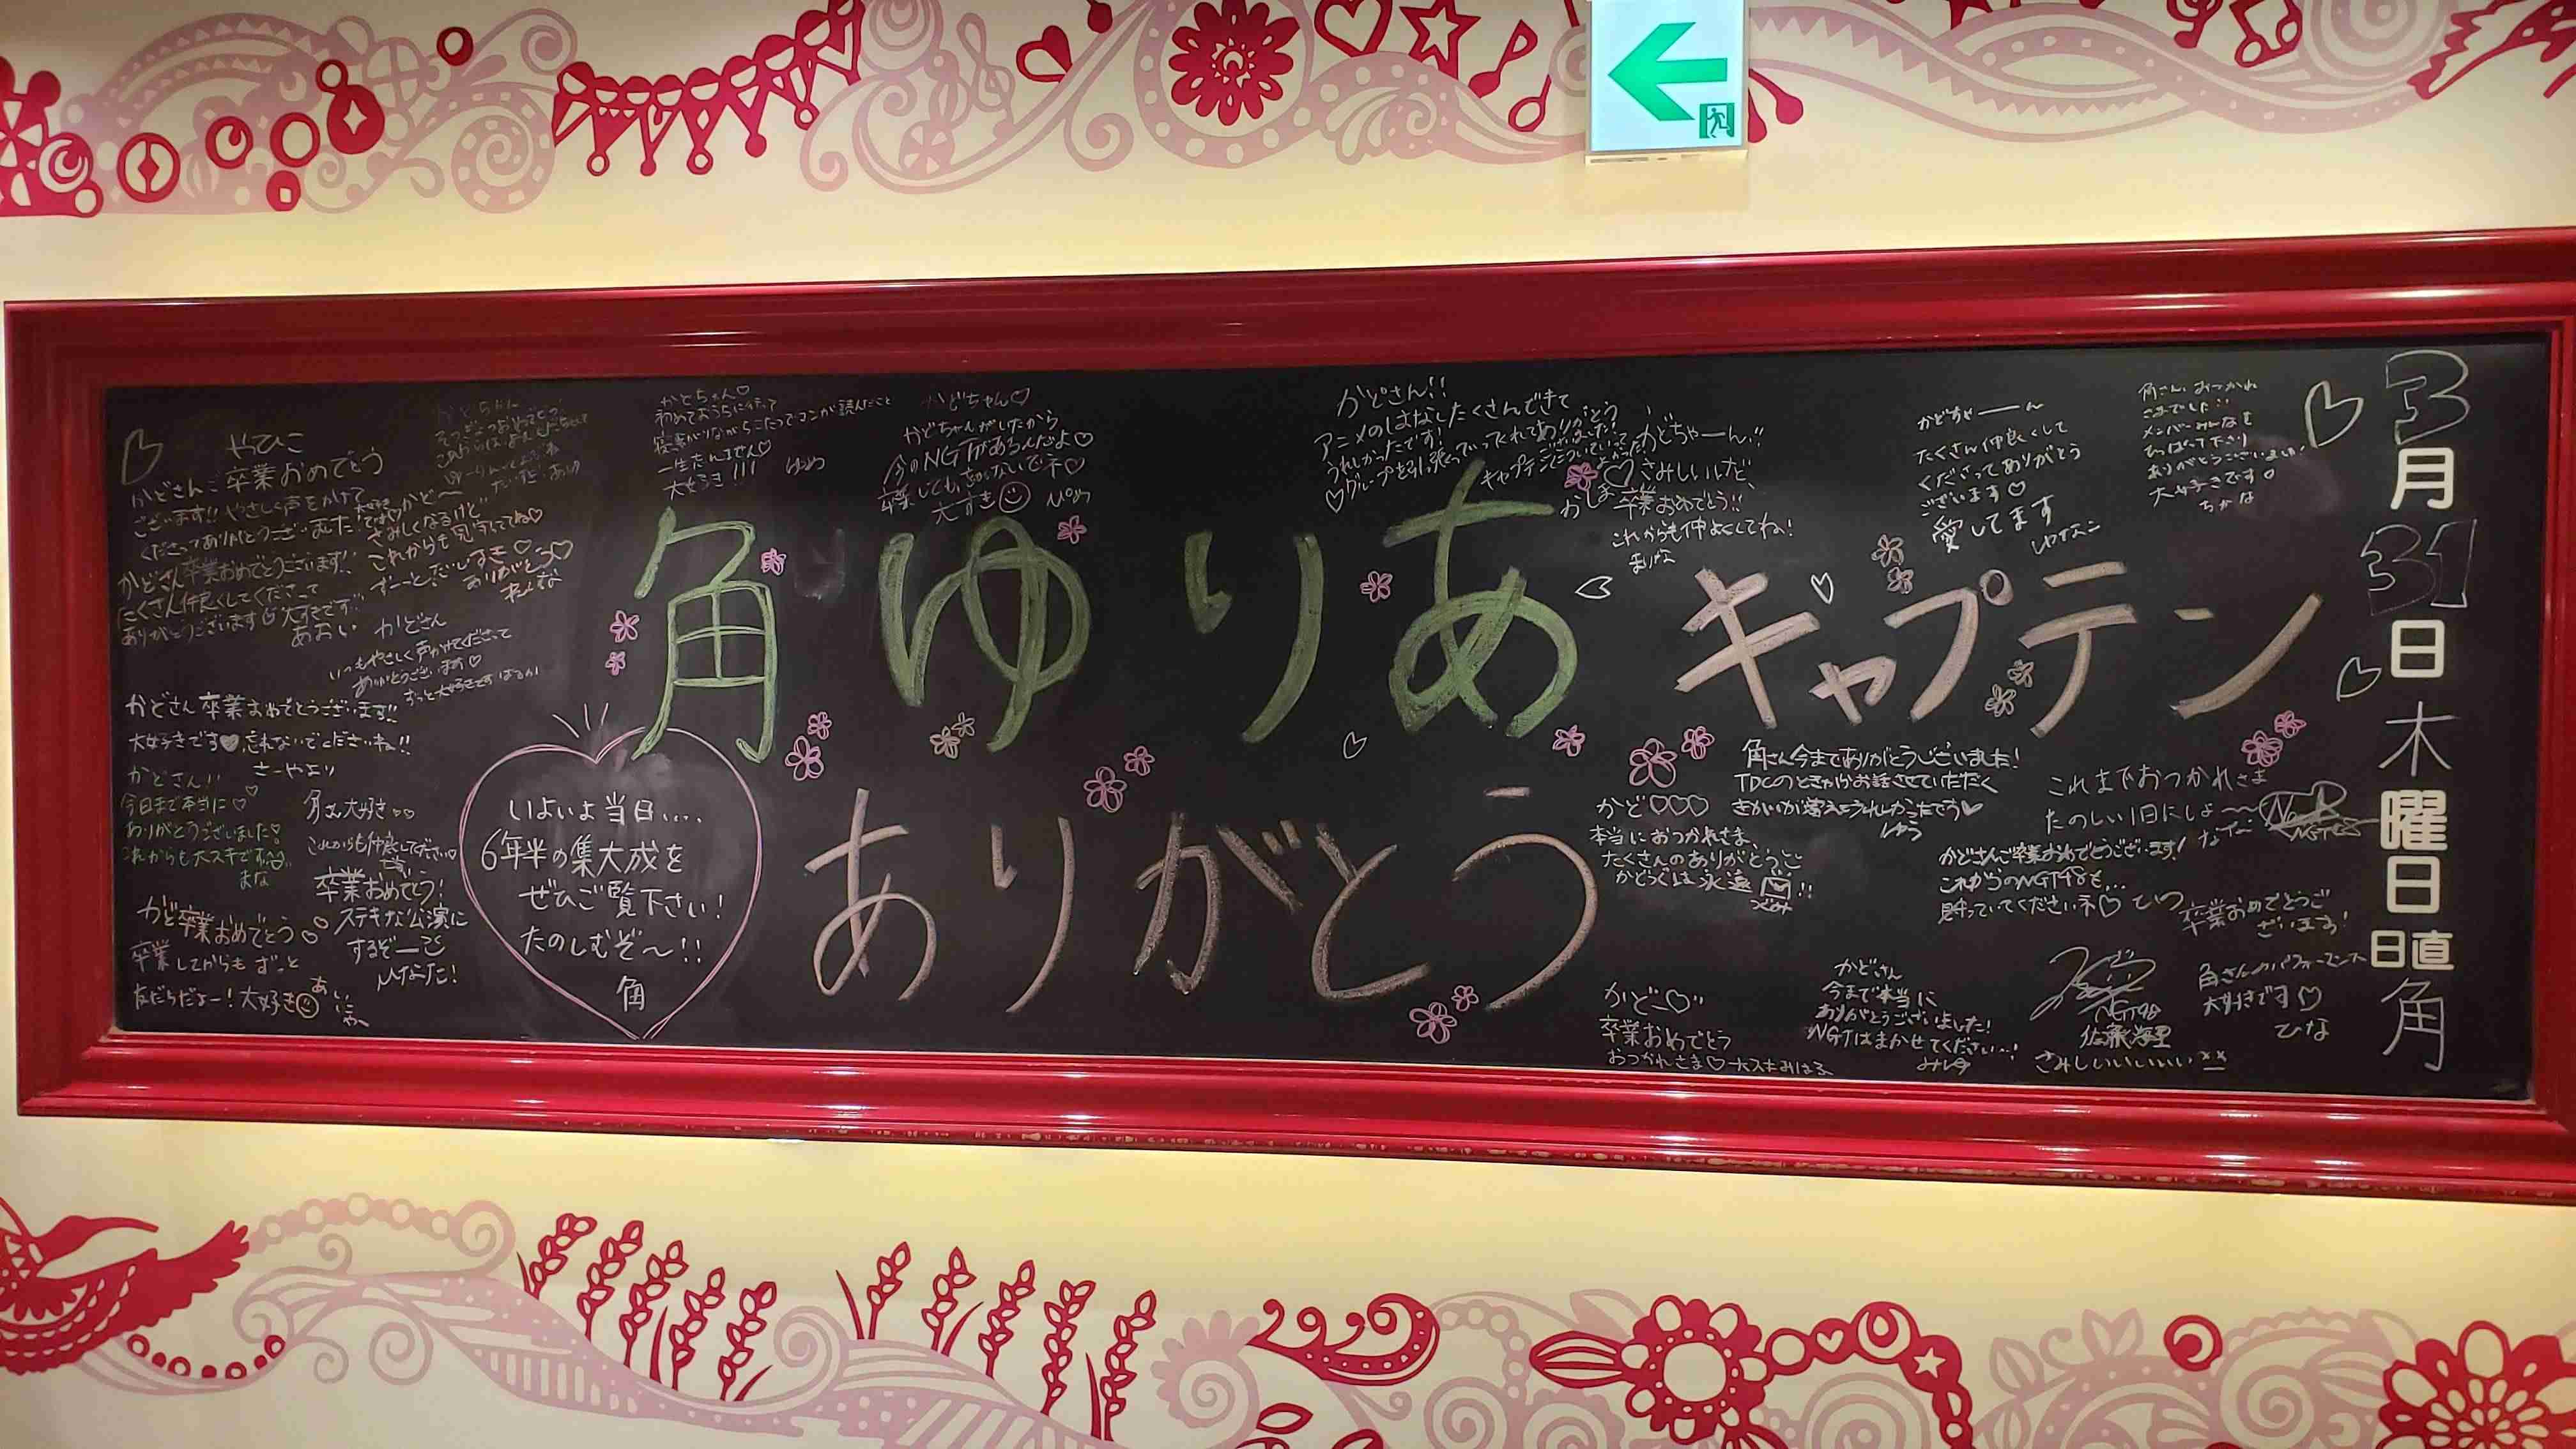 角ゆりあキャプテン
ありがとう
3月31日木曜日
日直 角
いよいよ当日....
6年半の集大成を
ぜひご覧下さい!
たのしむぞ〜!!
角
やひこ
かどさんご卒業おめでとう
ございます!! やさしく声をかけて
くださってありがとうございました
かどさん卒業おめでとうございます!!
たくさん仲良くしてくださって
ありがとうございます♡大好きです!!
あおい
さみしくなるけど
これからも見守っててね♡
ずーっとだいすき♡
ありがとう♡
かどさん
いつもやさしく声かけてくださって
ありがとうございます♡
ずっと大好きです はるか
かどさん卒業おめでとうございます!!
大好きです♥忘れないでくださいね!!
さーやより
かどさん!!
今日まで本当に♡
ありがとうございました!
これからも大スキです
まな
角さん大好き
これからも仲良くしてください
かど卒業おめでとう
卒業してからもずっと
友だちだよー!大好き☺
卒業おめでとう!
ステキな公演に
するぞー
ひなた!
かどちゃん♡
初めておうちに行って
寝転がりながらこたつでマンガ読んだこと
一生忘れません♡
大好き!!!
かどちゃん♡
かどちゃんがいたから
今のNGTがあるんだよ♡
卒業しても、忘れないでネ♡
大すき☺
かどさん!!
アニメのはなしたくさんできて
うれしかったです!
♡グループを引っ張っていってくれてありがとう
ございました!
キャプテンについていって
よかった!
かどちゃーん!!
さみしいけど、
卒業おめでとう!!
これからも仲よくしてね!
まりな
かどちゃーーん
たくさん仲良くして
くださってありがとう
ございます♡
愛してます
ゆなこ
角さん おつかれ
さまでした!!
メンバーみんなを
ひっぱって下さり
ありがとうございました!
大好きです
ちかな
角さん今までありがとうございました!
TDCのときからお話させていただく
きかいが増えてうれしかったです♥
ゆう
かど♡♡♡
本当におつかれさま、
たくさんのありがとうを
かどっくは永遠 !!
これまでおつかれさま
たのしい1日にしよ〜〜
かどさんご卒業おめでとうございます!
これからのNGT48も...
見守っていてくださいネ♡
卒業おめでとうご
ざいます!
角さんのパフォーマンス
大好きです♡
ひな
かどー♡
卒業おめでとう
おつかれさま♡大スキ みはる
かどさん
今まで本当に
ありがとうございました!
NGTはまかせてください...!
NGT48
佐藤海里
さみしいいいいい